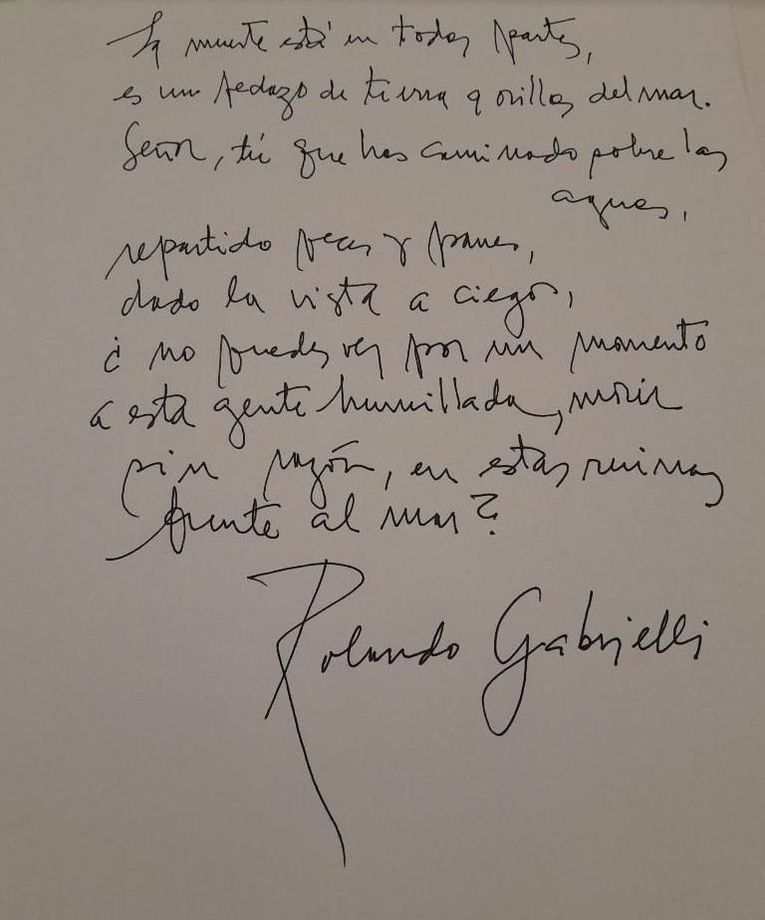 La muerte está en todas partes,
es un pedazo de tierra a orillas del mar.
Señor, tú que has caminado sobre las
aguas,
repartido peces y panes,
dado la vista a ciegos,
¿ no puedes ver por un momento
a esta gente humillada, morir
sin razón, en estas ruinas
frente al mar?
Rolando Gabrielli